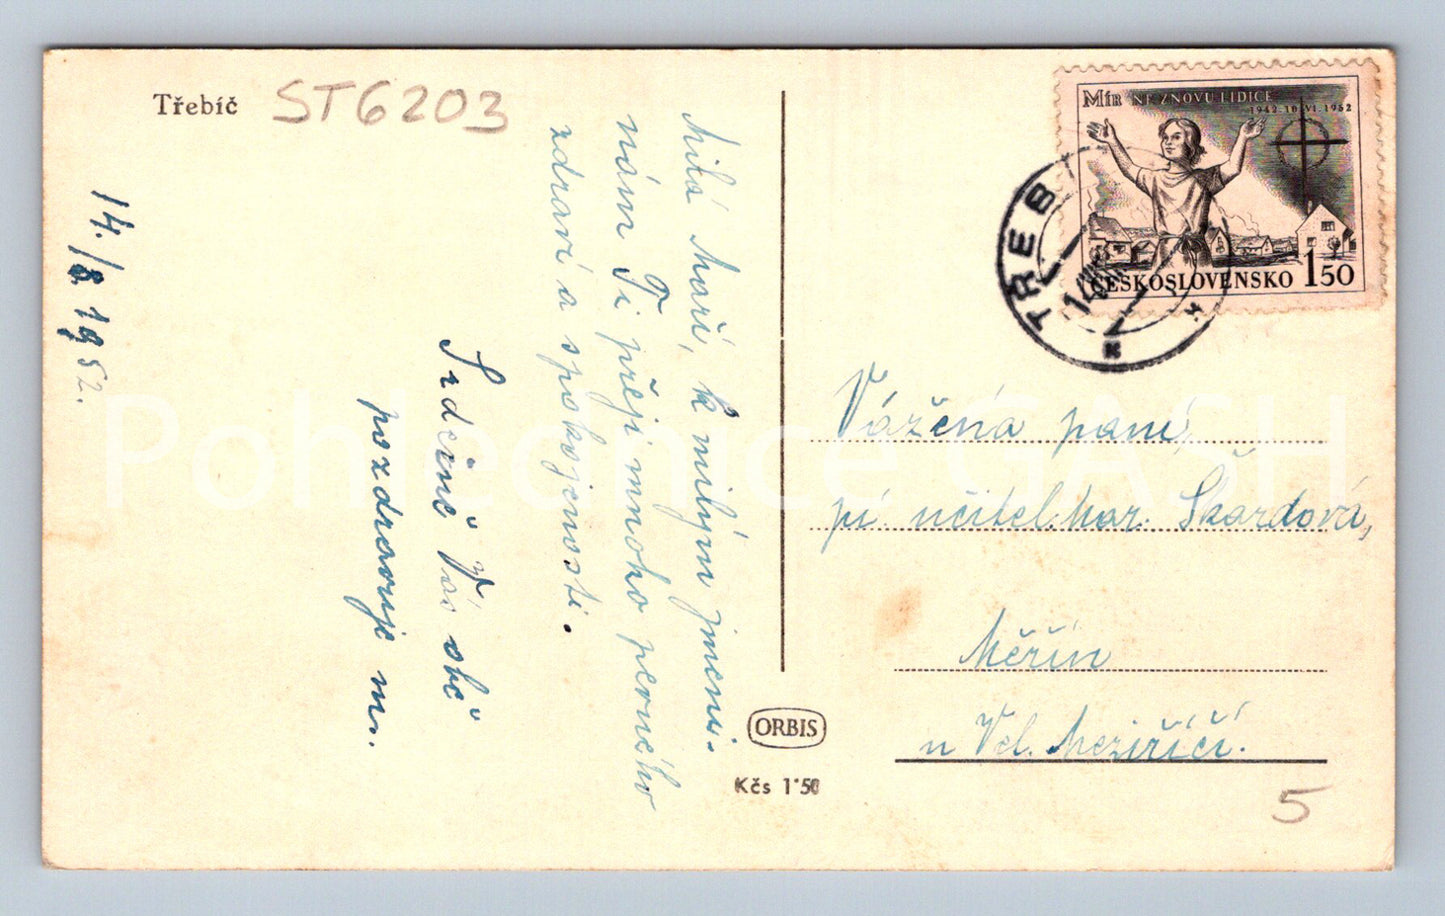 Třebíč
ST6203
14./8. 1952.
Milá Maři, k milým jmeni-
nám Ti přeji mnoho pevného
zdraví a spokojenosti.
Srdečně Vás obě
pozdravuje m.
MÍR NE ZNOVU LIDICE
1942 10.VI.1952
ČESKOSLOVENSKO 150
TŘEB
Vážená paní,
pí. učitel. Škardová,
Měřín
u Vel. Meziříčí.
ORBIS
Kčs 1·50
5
Pohlednice GASH